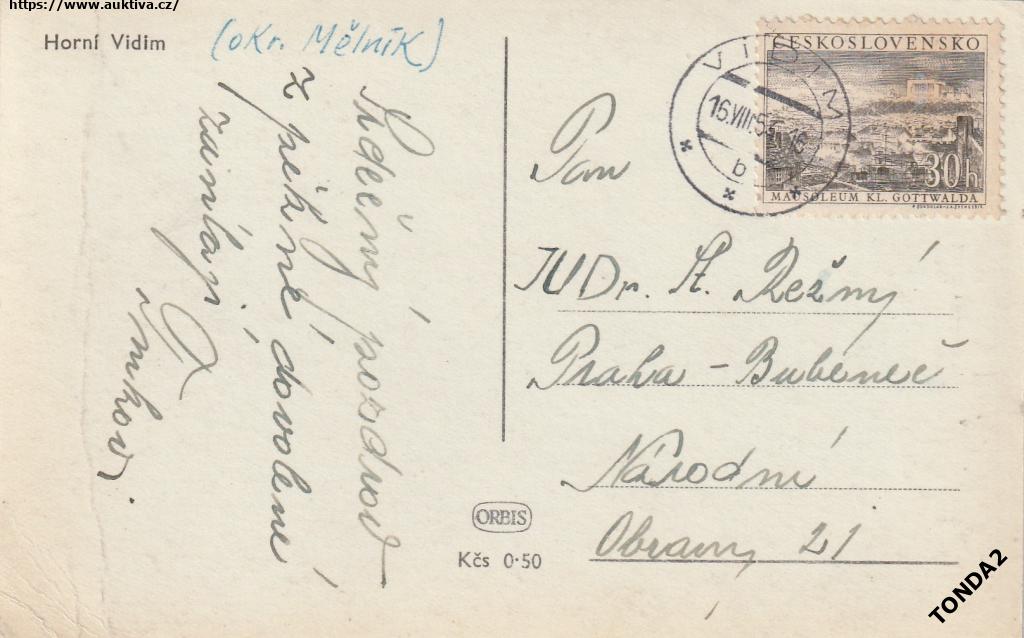 https://www.auktiva.cz/
Horní Vidim
(okr. Mělník)
Srdečný pozdrav
z pěkné dovolené
zasílají
ČESKOSLOVENSKO
30h
MAUSOLEUM KL. GOTTWALDA
VIDIM
16.VIII.
b
Pan
JUDr. St. Režný
Praha - Bubeneč
Národní
Obrany 21
ORBIS
Kčs 0·50
TONDA2